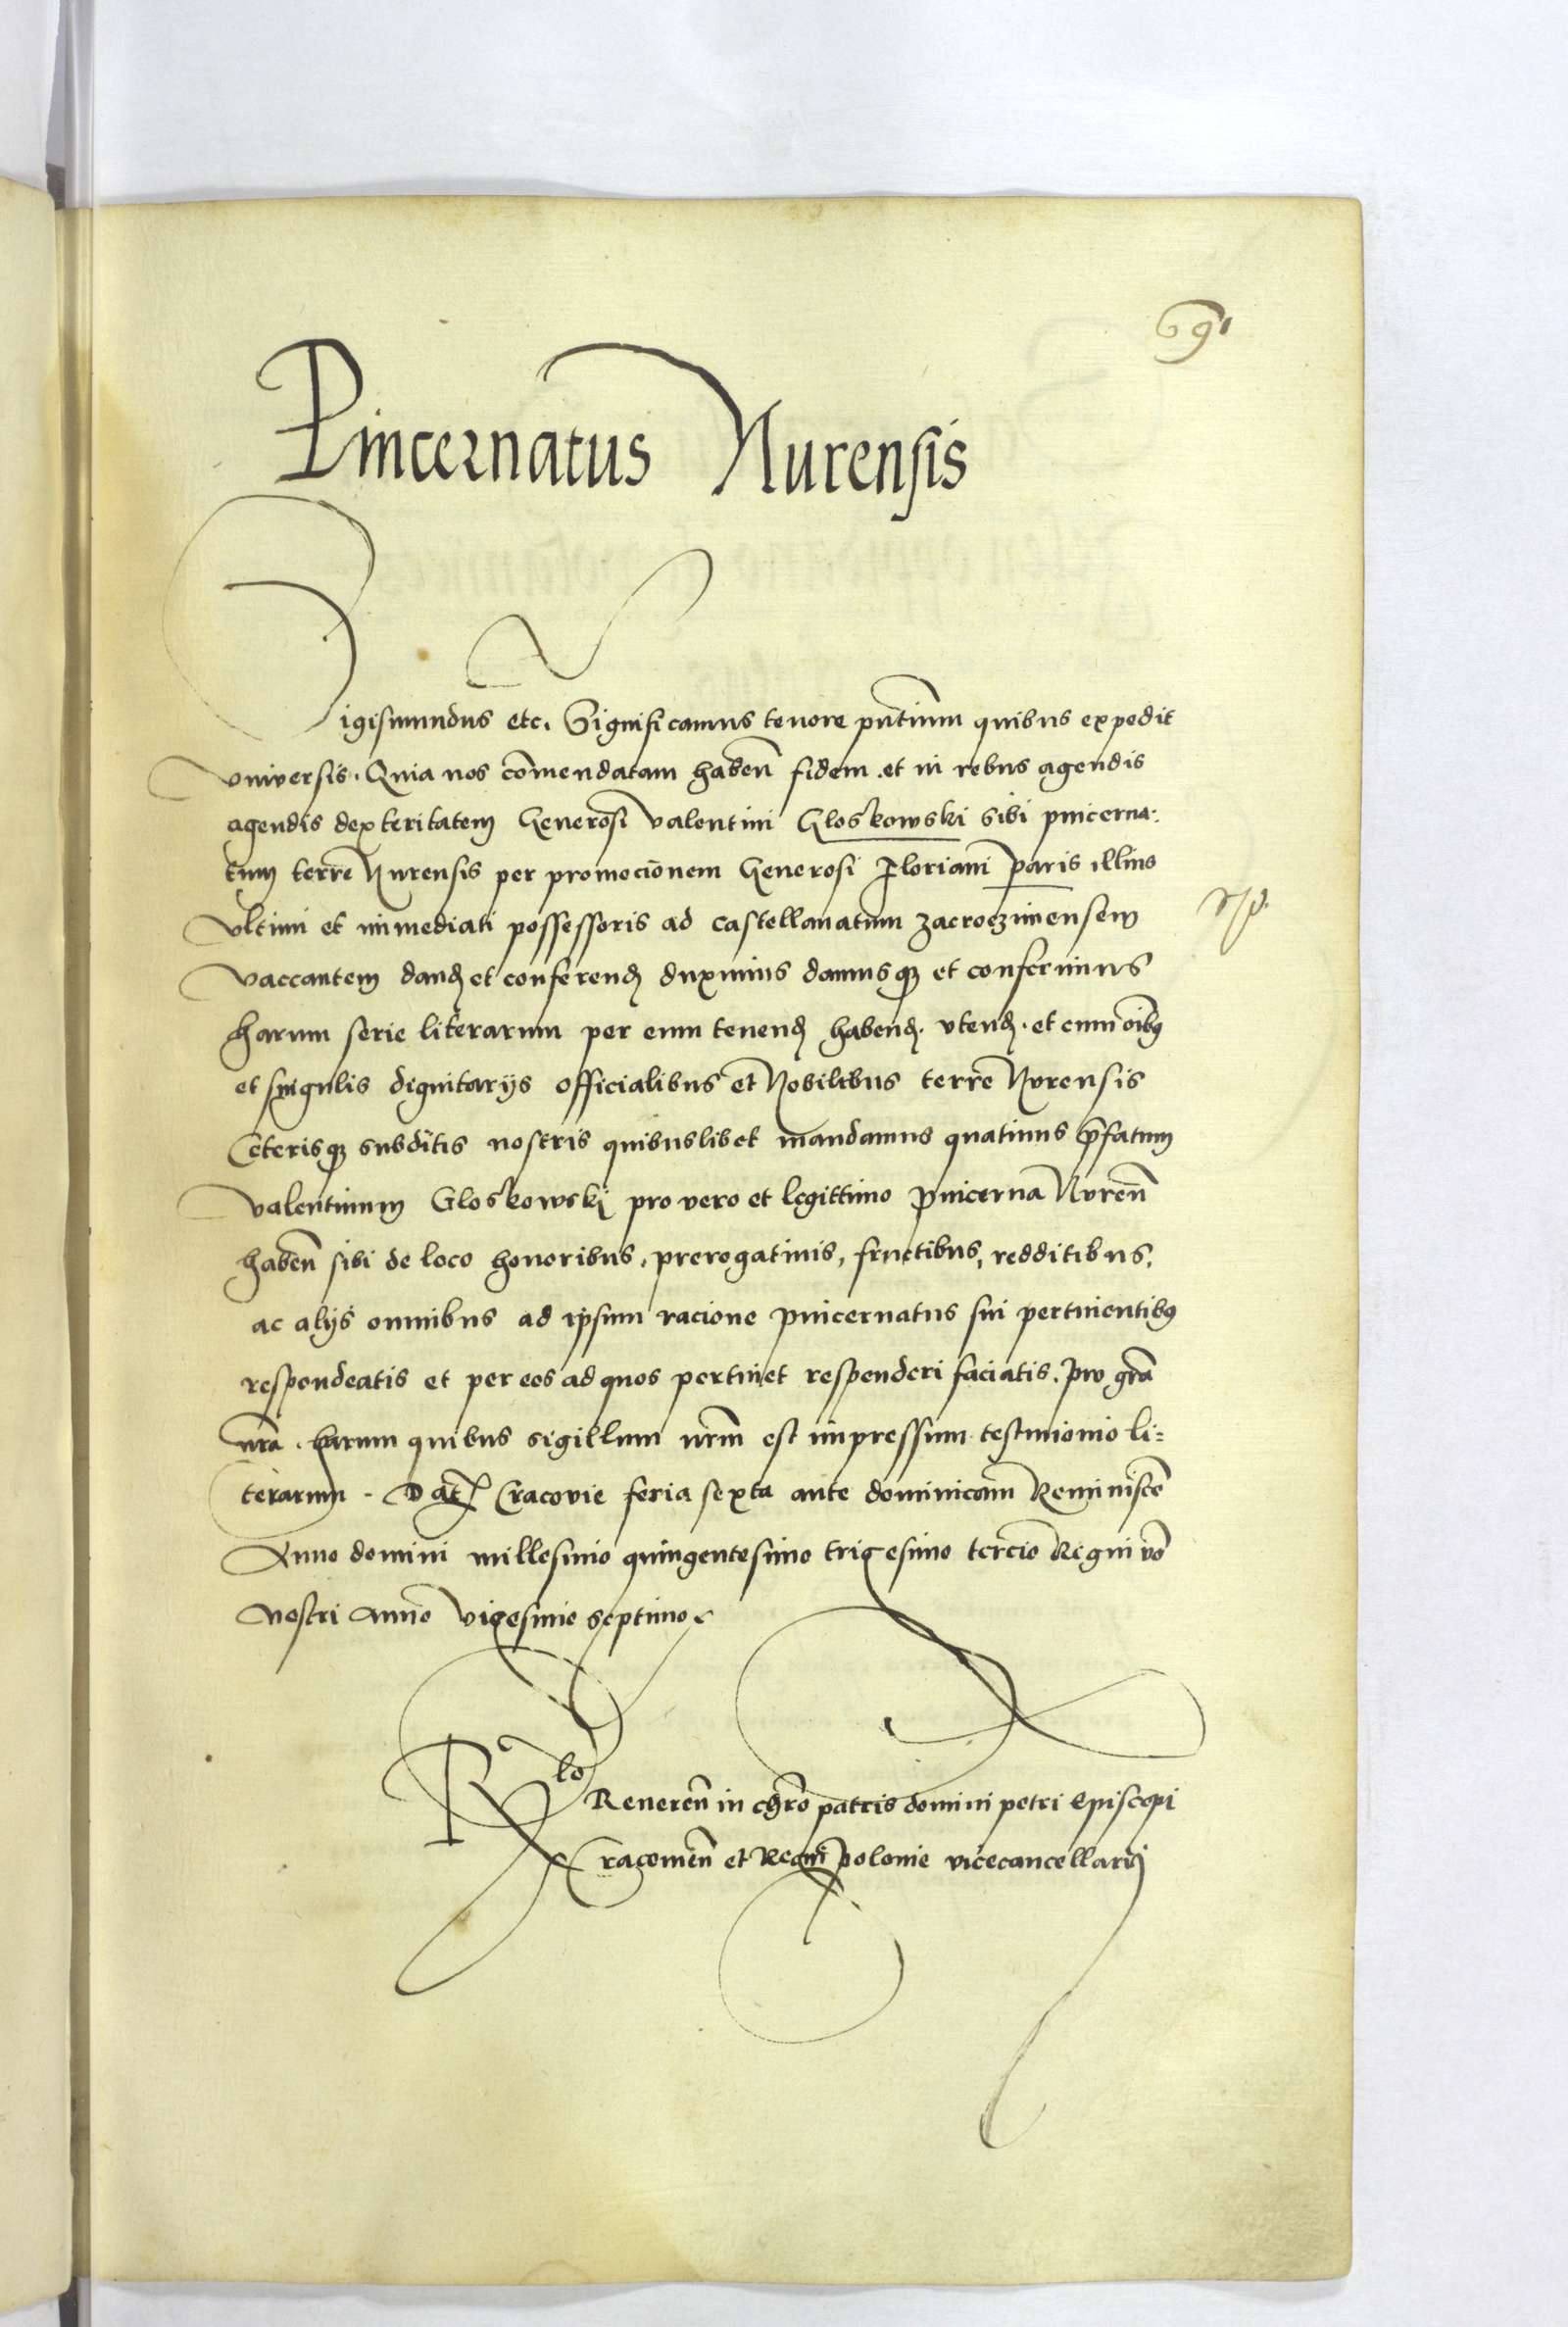 69
Pincernatus Nurensis
Sigismundus etc. Significamus tenore pntium quibus expedit
vniversis. Quia nos comendatam haben fidem et in rebus agendis
agendis dexteritatem Generosi Valentini Gloskowski sibi pincerna:
tum terre Nurensis per promocionem Generosi Floriani paris illius
vltimi et immediati possessoris ad castellanatum zacroczimensem
vaccantem dand et conferend duximus damusq et conferimus
harum serie literarum per eum tenend habend. vtend. et cum oibq
et singulis dignitarijs officialibus et Nobilibus terre Nurensis
Ceterisq subditis nostris quibuslibet mandamus quatinus pfatum
valentinum Gloskowskj pro vero et legittimo pincerna Nuren
haben sibi de loco honoribus, prerogatiuis, fructibus, redditibus,
ac alijs omnibus ad ipsum racione pincernatus sui pertinentibq
respondeatis et per eos ad quos pertinet responderi faciatis. pro gra
nra. harum quibus sigillum nrm est impressum testimonio li=
terarum. Dat Cracovie feria sexta ante dominicam Reminisce
Anno domini millesimo quingentesimo trigesimo tercio Regni vo
Nostri Anno vigesimo septimo
Rlo Reueren in chro patris domini petri Episcopi
Cracouien et Regni polonie vicecancellarij